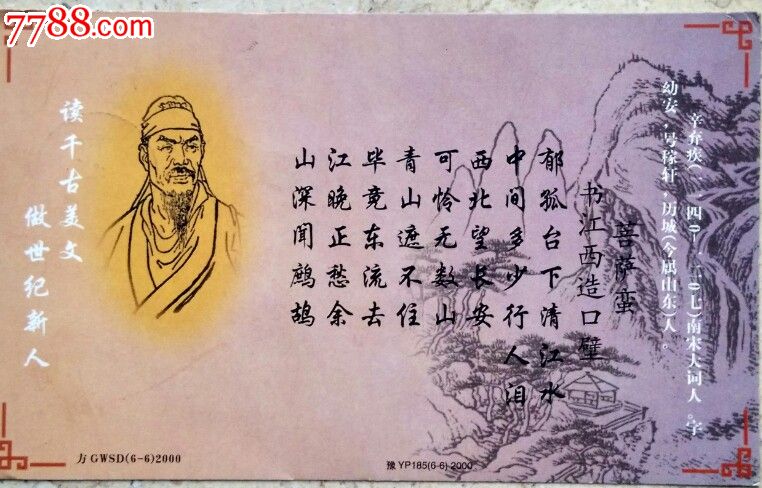 7788.com
辛弃疾(一一四0—一二0七)南宋大词人。字
幼安,号稼轩,历城(今属山东)人。
菩萨蛮
书江西造口壁
郁孤台下清江水
中间多少行人泪
西北望长安
可怜无数山
青山遮不住
毕竟东流去
江晚正愁余
山深闻鹧鸪
读千古美文
做世纪新人
方 GWSD(6-6)2000
豫 YP185(6-6) 2000